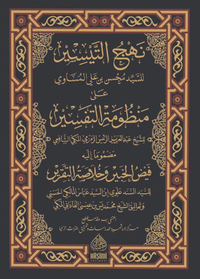 نهج التيسير
للسيد محسن بن علي المساوي
على
منظومة التفسير
للشيخ عبد العزيز الرئيس الزمزمي المكي الشافعي
مضموما إليه
فيض الخبير وخلاصة التقرير
للسيد علوي ابن السيد عباس المالكي الحسني